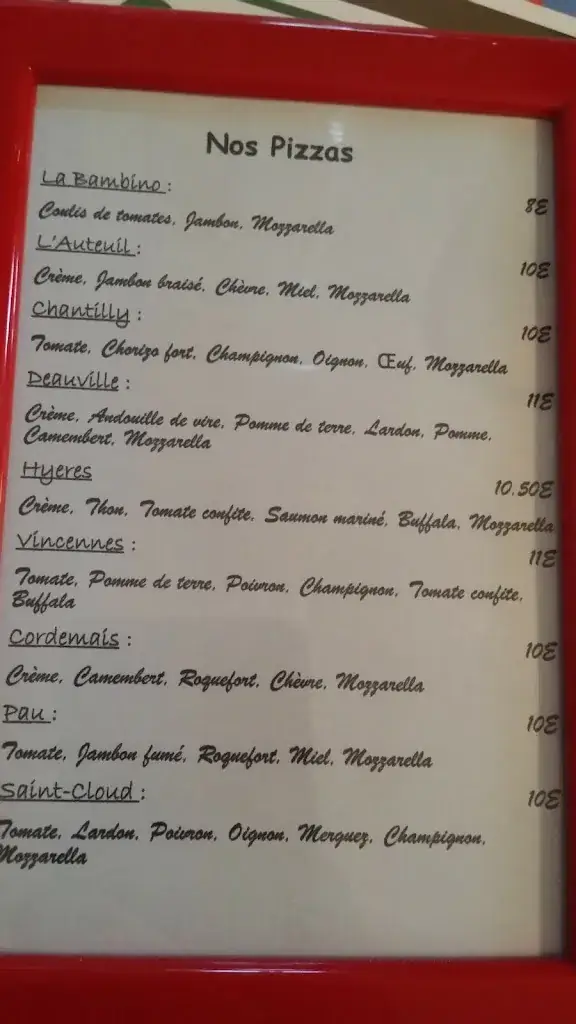 Nos Pizzas
La Bambino :
8E
Coulis de tomates, Jambon, Mozzarella
L'Auteuil :
10E
Crème, Jambon braisé, Chèvre, Miel, Mozzarella
Chantilly :
10E
Tomate, Chorizo fort, Champignon, Oignon, Œuf, Mozzarella
Deauville :
11E
Crème, Andouille de vire, Pomme de terre, Lardon, Pomme,
Camembert, Mozzarella
Hyeres
10.50E
Crème, Thon, Tomate confite, Saumon mariné, Buffala, Mozzarella
Vincennes :
11E
Tomate, Pomme de terre, Poivron, Champignon, Tomate confite,
Buffala
Cordemais :
10E
Crème, Camembert, Roquefort, Chèvre, Mozzarella
Pau :
10E
Tomate, Jambon fumé, Roquefort, Miel, Mozzarella
Saint-Cloud :
10E
Tomate, Lardon, Poivron, Oignon, Merguez, Champignon,
Mozzarella